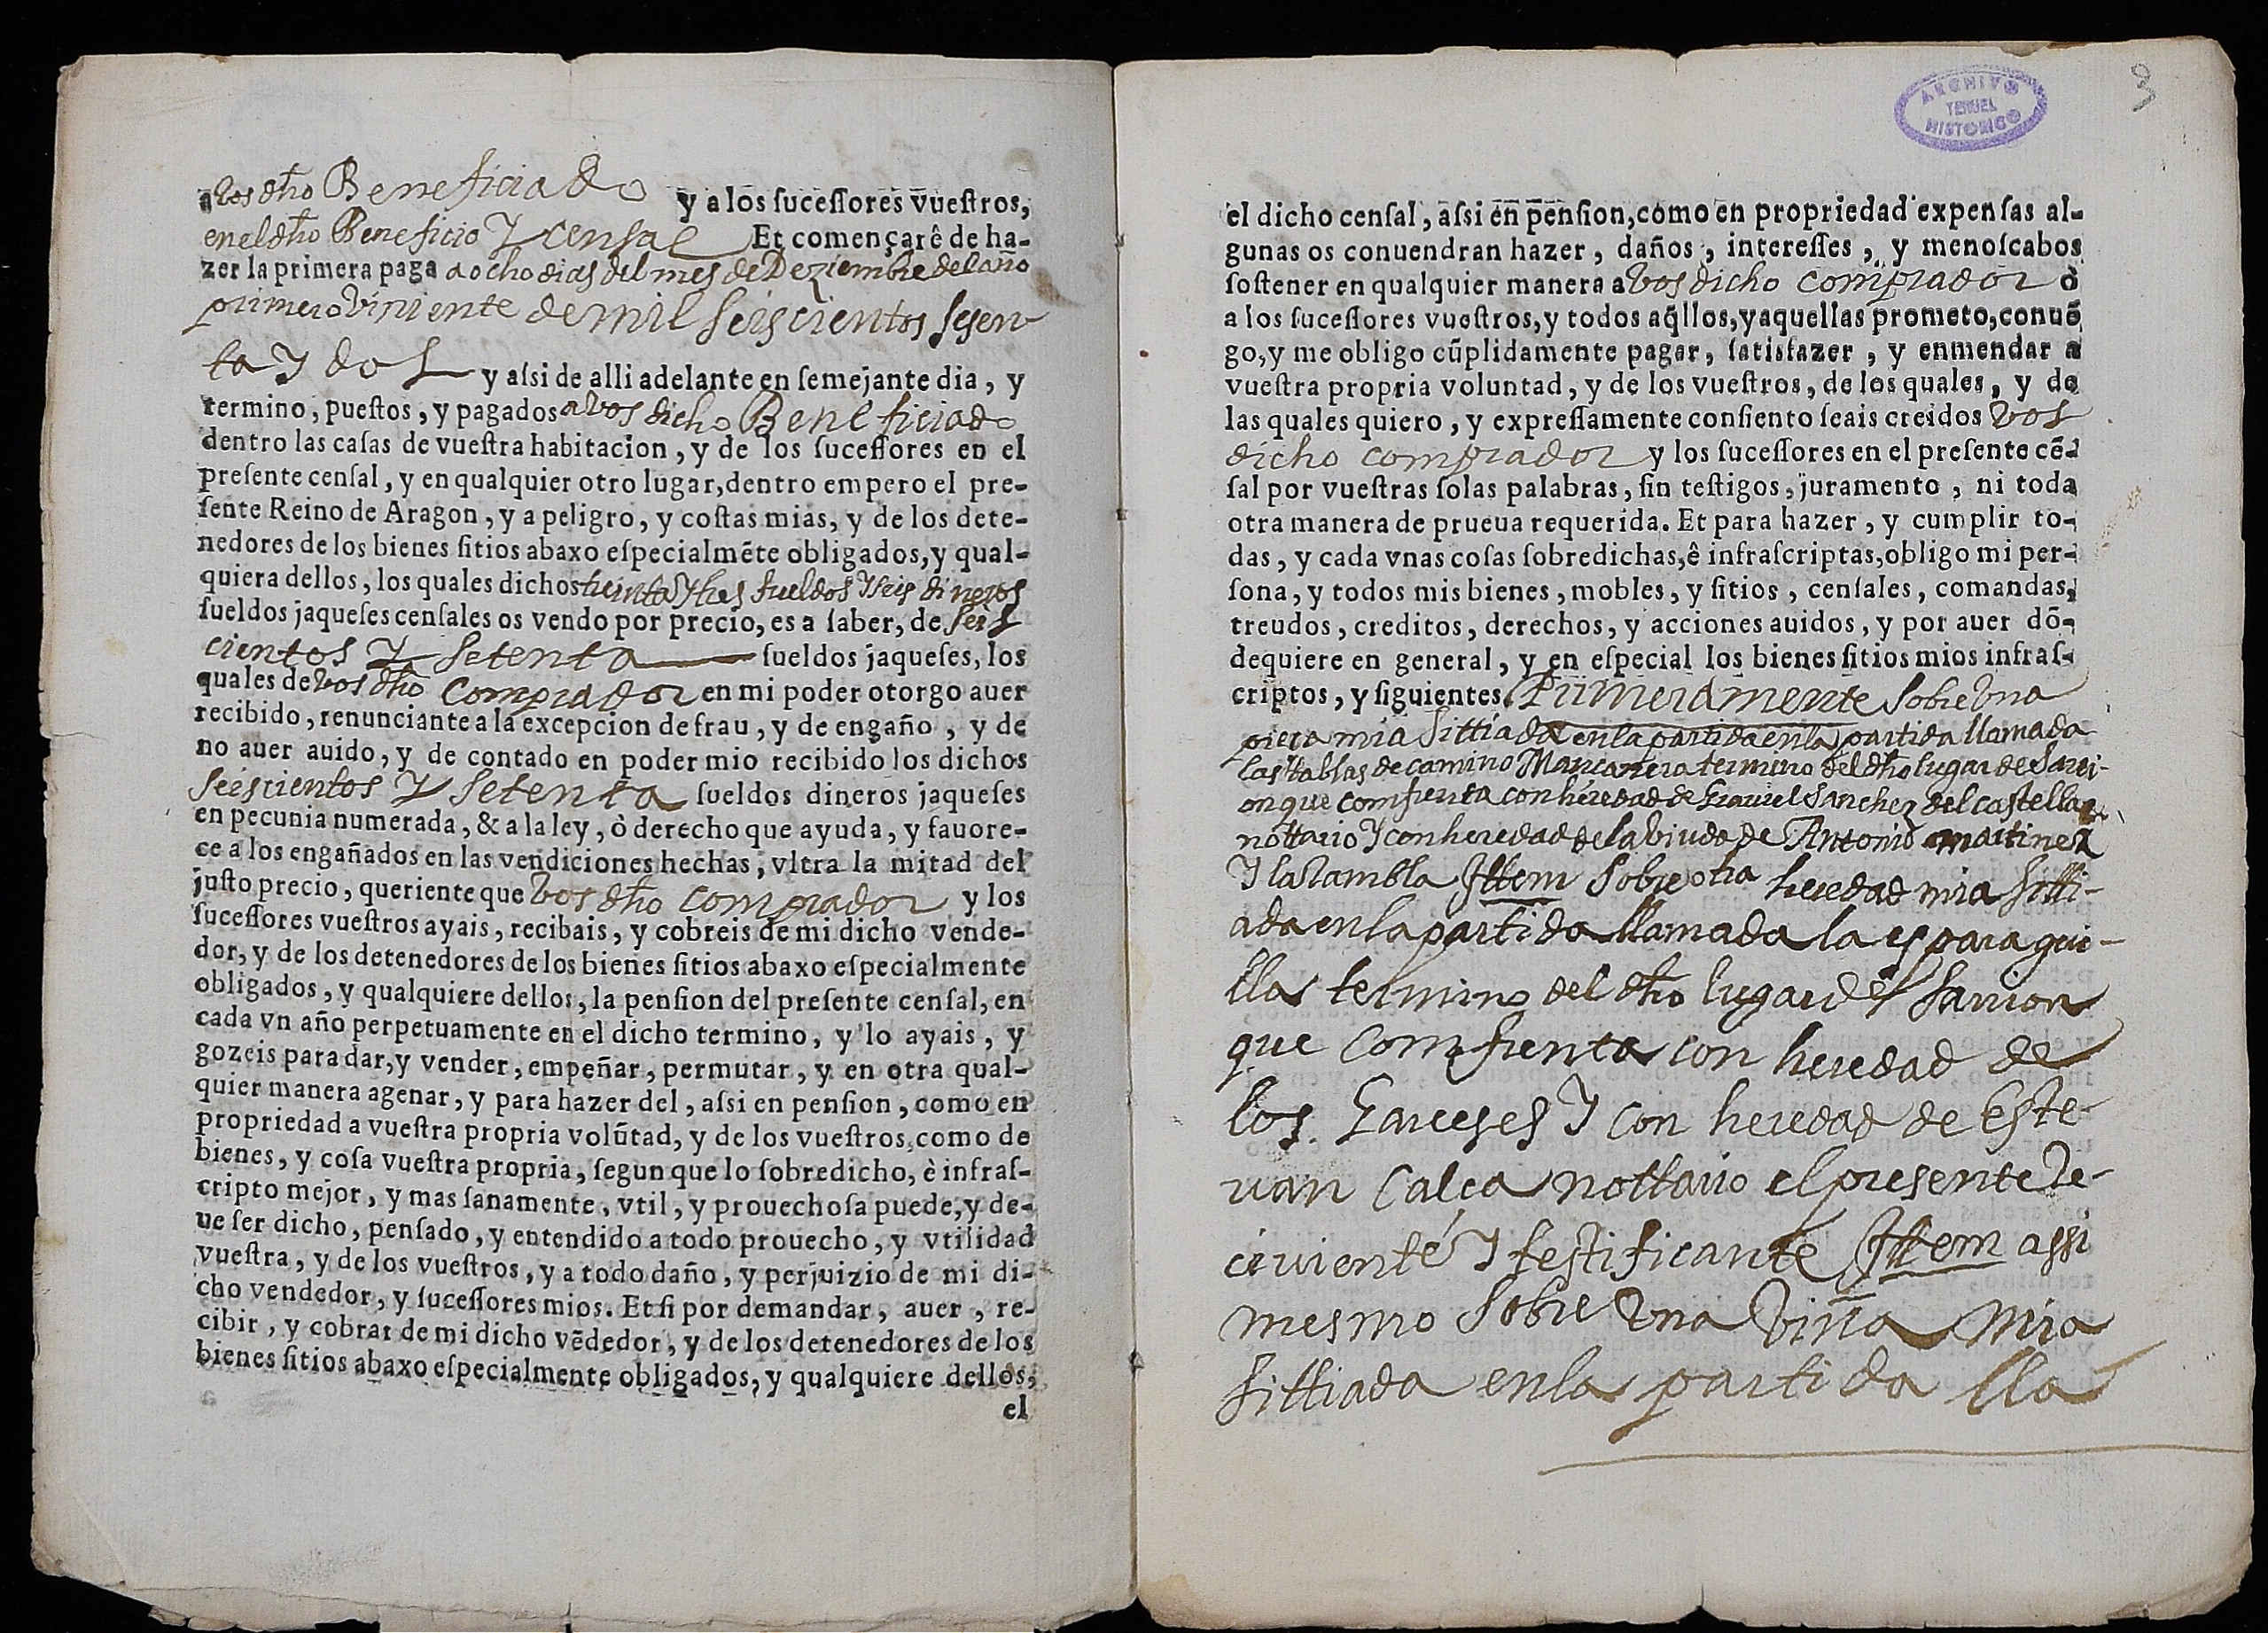 a vos dho Beneficiado y a los ſuceſſores vueſtros,
en el dho Beneficio Y censal Et començarê de ha-
zer la primera paga a ocho dias del mes de Deziembre del año
primero viniente de mil seiscientos sesen
ta Y dos y aſsi de alli adelante en ſemejante dia, y
termino, pueſtos, y pagados a vos dicho Beneficiado
dentro las caſas de vueſtra habitacion, y de los ſuceſſores en el
preſente cenſal, y en qualquier otro lugar, dentro empero el pre-
ſente Reino de Aragon, y a peligro, y coſtas mias, y de los dete-
nedores de los bienes ſitios abaxo eſpecialmẽte obligados, y qual-
quiera dellos, los quales dichos treinta Y tres sueldos Y seis dineros
ſueldos jaqueſes cenſales os vendo por precio, es a ſaber, de seis
cientos Y setenta ſueldos jaqueſes, los
quales de vos dho comprador en mi poder otorgo auer
recibido, renunciante a la excepcion de frau, y de engaño, y de
no auer auido, y de contado en poder mio recibido los dichos
seiscientos Y setenta ſueldos dineros jaqueſes
en pecunia numerada, & a la ley, ò derecho que ayuda, y fauore-
ce a los engañados en las vendiciones hechas, vltra la mitad del
juſto precio, queriente que vos dho comprador y los
ſuceſſores vueſtros ayais, recibais, y cobreis de mi dicho vende-
dor, y de los detenedores de los bienes ſitios abaxo eſpecialmente
obligados, y qualquiere dellos, la penſion del preſente cenſal, en
cada vn año perpetuamente en el dicho termino, y lo ayais, y
gozeis para dar, y vender, empeñar, permutar, y en otra qual-
quier manera agenar, y para hazer del, aſsi en penſion, como en
propriedad a vueſtra propria volũtad, y de los vueſtros, como de
bienes, y coſa vueſtra propria, ſegun que lo ſobredicho, è infraſ-
cripto mejor, y mas ſanamente, vtil, y prouechoſa puede, y de-
ue ſer dicho, penſado, y entendido a todo prouecho, y vtilidad
vueſtra, y de los vueſtros, y a todo daño, y perjuizio de mi di-
cho vendedor, y ſuceſſores mios. Et ſi por demandar, auer, re-
cibir, y cobrar de mi dicho vẽdedor, y de los detenedores de los
bienes ſitios abaxo eſpecialmente obligados, y qualquiere dellos,
el
ARCHIVO
TERUEL
HISTORICO
3
el dicho cenſal, aſsi en penſion, como en propriedad expenſas al-
gunas os conuendran hazer, daños, intereſſes, y menoſcabos
ſoſtener en qualquier manera a vos dicho comprador ò
a los ſuceſſores vueſtros, y todos aq̃llos, y aquellas prometo, conuẽ
go, y me obligo cũplidamente pagar, ſatisfazer, y enmendar a
vueſtra propria voluntad, y de los vueſtros, de los quales, y de
las quales quiero, y expreſſamente conſiento ſeais creidos vos
dicho comprador y los ſuceſſores en el preſente cẽ-
ſal por vueſtras ſolas palabras, ſin teſtigos, juramento, ni toda
otra manera de prueua requerida. Et para hazer, y cumplir to-
das, y cada vnas coſas ſobredichas, ê infraſcriptas, obligo mi per-
ſona, y todos mis bienes, mobles, y ſitios, cenſales, comandas,
treudos, creditos, derechos, y acciones auidos, y por auer dõ-
dequiere en general, y en eſpecial los bienes ſitios mios infraſ-
criptos, y ſiguientes. Primeramente sobre vna
pieça mia sittiada en la partida en la partida llamada
las tablas de camino Mançanera termino del dho lugar de Sarri-
on que comfrenta con heredad de Grauiel Sanchez del castellar
nottario Y con heredad de la viuda de Antonio martinez
Y la Rambla Ittem sobre otra heredad mia sitti-
ada en la partida llamada la esparagui-
llas termino del dho lugar de Sarrion
que comfrenta con heredad de
los Garceses Y con heredad de Este-
uan Calça nottario el presente re-
civiente Y testificante Ittem assi
mesmo sobre vna viña mia
sittiada en la partida lla